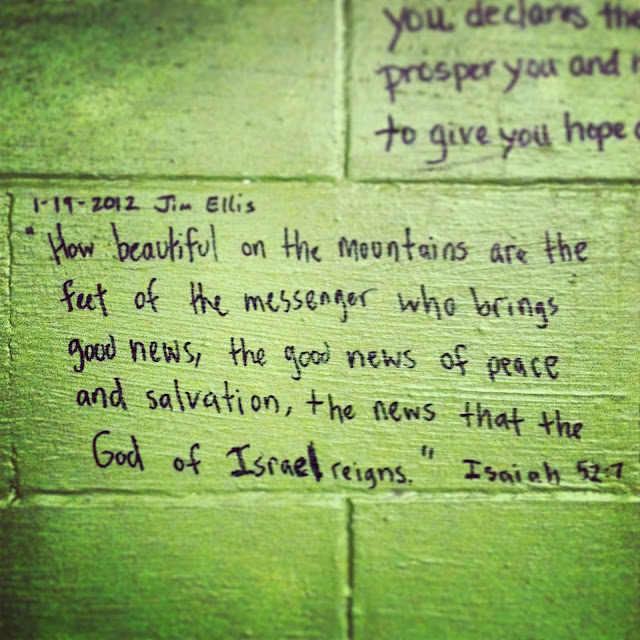 you declares the
prosper you and
to give you hope
1-19-2012 Jim Ellis
"How beautiful on the mountains are the
feet of the messenger who brings
good news, the good news of peace
and salvation, the news that the
God of Israel reigns." Isaiah 52:7